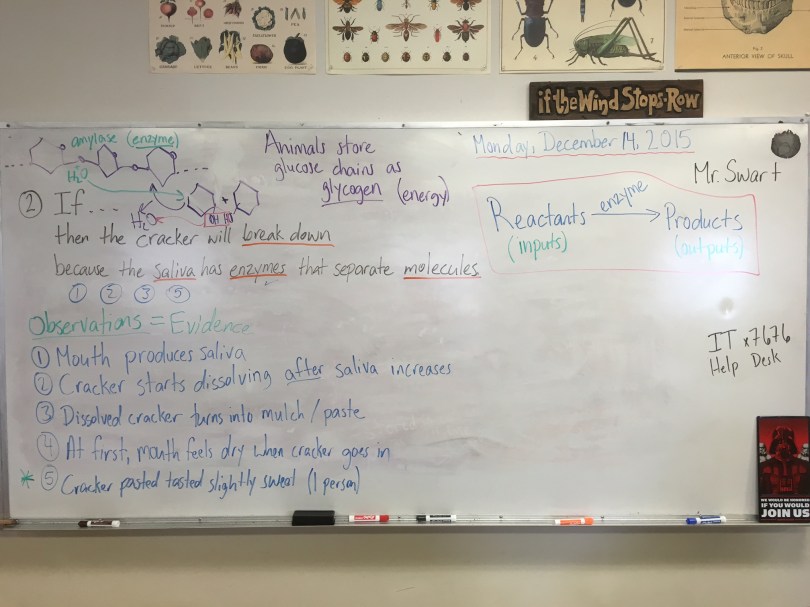 ANTERIOR VIEW OF SKULL
if the Wind Stops-Row
amylase (enzyme)
H₂O
H₂O
OH HO
Animals store
glucose chains as
glycogen (energy)
Monday, December 14, 2015
Mr. Swart
Reactants enzyme Products
(inputs) (outputs)
② If....
then the cracker will break down
because the saliva has enzymes that separate molecules
① ② ③ ⑤
Observations = Evidence
① Mouth produces saliva
② Cracker starts dissolving after saliva increases
③ Dissolved cracker turns into mulch/paste
④ At first, mouth feels dry when cracker goes in
* ⑤ Cracker pasted tasted slightly sweat (1 person)
IT x7676
Help Desk
WE WOULD BE HONORED
IF YOU WOULD
JOIN US